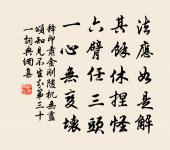 法應如是解
其餘休捏怪
六臂任三頭
一心無變壞
釋印肅金剛隨機無盡
頌知見不生分第三十
一詞典網書